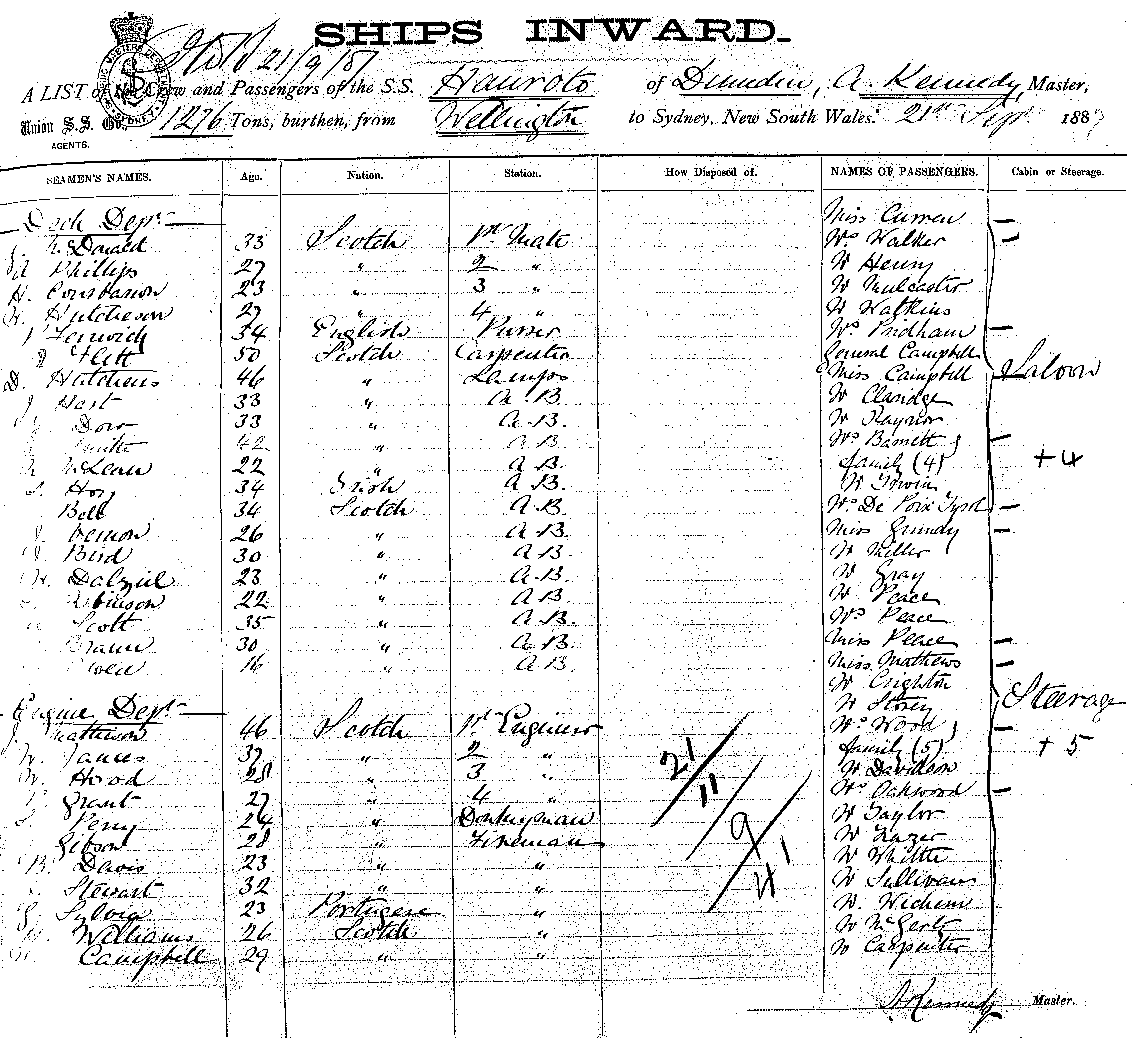 SHIPS INWARD.
21/9/87
A LIST of the Crew and Passengers of the S.S. Hauroto of Dunedin, A. Kennedy, Master,
Union S.S. Co., 1276 Tons, burthen, from Wellington to Sydney, New South Wales. 21st Sept 1887
AGENTS.
SEAMEN'S NAMES. Age. Nation. Station. How Disposed of. NAMES OF PASSENGERS. Cabin or Steerage.
Deck Dept Miss Curren —
McDonald 33 Scotch 1st Mate Mrs Walker —
Phillips 27 " 2 " Mr Henry
H. 23 " 3 " Mr Mulcaster
Hutcheson 27 " 4 " Mr Watkins
Fenwick 34 English Purser Mrs Pridham —
Flett 50 Scotch Carpenter General Campbell
D. Hutchens 46 " Lamps Miss Campbell Saloon
J Hart 33 " A.B. Mr Claridge
Dow 33 " A.B. Mr Raynor
42 " A.B. Mrs Barnett & —
McLean 22 " A.B. family (4) + 4
34 Irish A.B. Mr Irwin
Bell 34 Scotch A.B. Mrs De Poix Tyrel —
Vernon 26 " A.B. Miss Grundy —
Bird 30 " A.B. Mr Miller
Dalziel 23 " A.B. Mr Gray
Robinson 22 " A.B. Mr Peace
Scott 35 " A.B. Mrs Peace
30 " A.B. Miss Peace —
16 " A.B. Miss Mathews —
Mr Crighton
Engine Dept Mr Storey Steerage
J Matheson 46 Scotch 1st Engineer Mrs Wood & —
W. James 37 " 2 " family (5) + 5
W. Hood 28 " 3 " Mr Davidson
Grant 27 " 4 " Mrs Oakwood —
Perry 24 " Donkeyman Mr Taylor
Gibson 28 " Fireman Mr Frazer
Davis 23 " " Mr Whittle
Stewart 32 " " Mr Sullivan
Sylvia 23 Portugese " Mr
Williams 26 Scotch " Mr
Campbell 29 " " Mr Carpenter
21/11/9/41
A Kennedy Master.